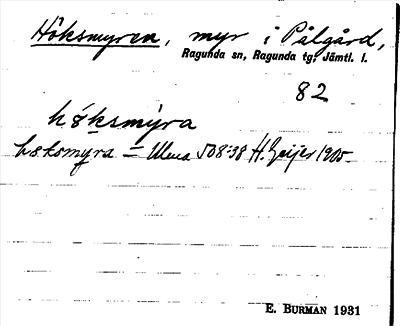 Höksmyren, myr i Pålgård,
Ragunda sn, Ragunda tg, Jämtl. l.
82
höksmýra
höksmyra = Ulma 508:38 H. Geijer 1905
E. BURMAN 1931